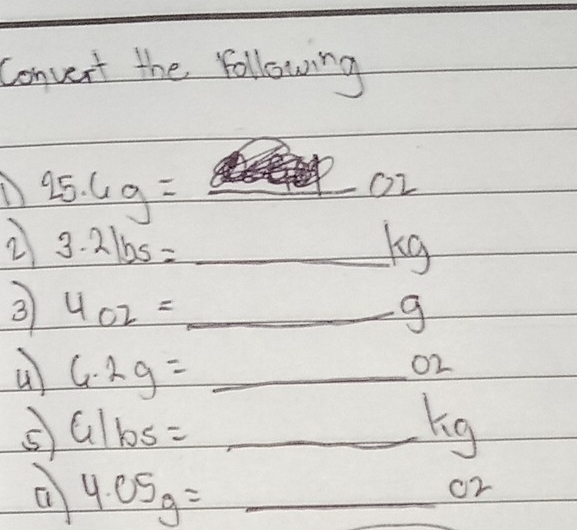 Convert the following
1) 25.6g = oz
2) 3.2lbs = kg
3) 4oz = g
4) 6.2g = oz
5) 6lbs = kg
6) 4.05g = oz